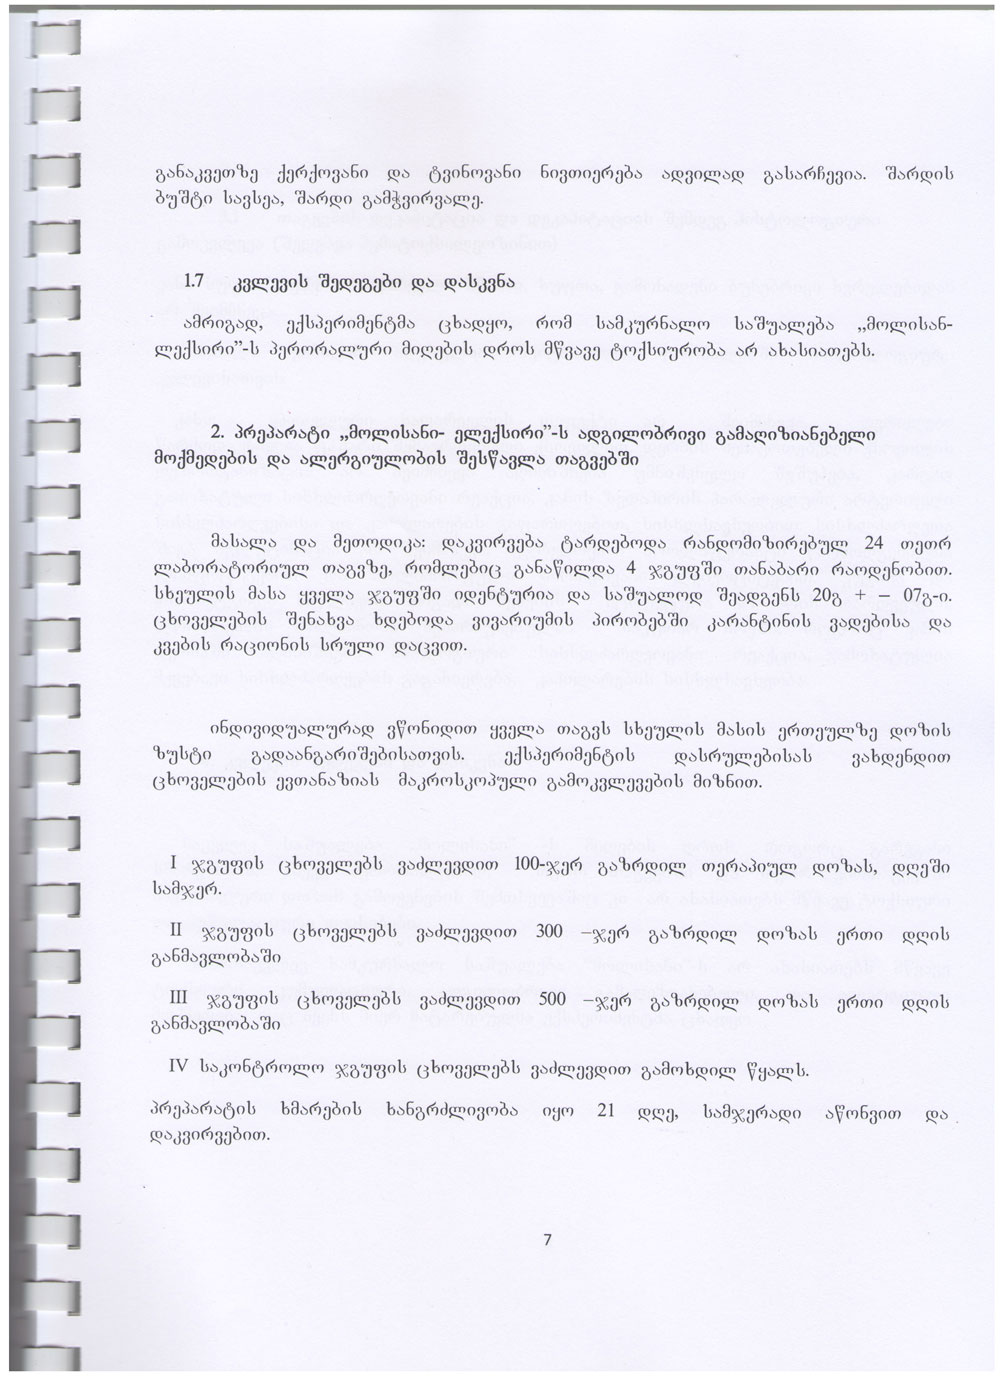 განაკვეთზე ქერქოვანი და ტვინოვანი ნივთიერება ადვილად გასარჩევია. შარდის
ბუშტი სავსეა, შარდი გამჭვირვალე.
1.7 კვლევის შედეგები და დასკვნა
ამრიგად, ექსპერიმენტმა ცხადყო, რომ სამკურნალო საშუალება „მოლისან-
ლექსირი”-ს პერორალური მიღების დროს მწვავე ტოქსიურობა არ ახასიათებს.
2. პრეპარატი „მოლისანი- ელექსირი”-ს ადგილობრივი გამაღიზიანებელი
მოქმედების და ალერგიულობის შესწავლა თაგვებში
მასალა და მეთოდიკა: დაკვირვება ტარდებოდა რანდომიზირებულ 24 თეთრ
ლაბორატორიულ თაგვზე, რომლებიც განაწილდა 4 ჯგუფში თანაბარი რაოდენობით.
სხეულის მასა ყველა ჯგუფში იდენტურია და საშუალოდ შეადგენს 20გ + – 07გ-ი.
ცხოველების შენახვა ხდებოდა ვივარიუმის პირობებში კარანტინის ვადებისა და
კვების რაციონის სრული დაცვით.
ინდივიდუალურად ვწონიდით ყველა თაგვს სხეულის მასის ერთეულზე დოზის
ზუსტი გადაანგარიშებისათვის. ექსპერიმენტის დასრულებისას ვახდენდით
ცხოველების ევთანაზიას მაკროსკოპული გამოკვლევების მიზნით.
I ჯგუფის ცხოველებს ვაძლევდით 100-ჯერ გაზრდილ თერაპიულ დოზას, დღეში
სამჯერ.
II ჯგუფის ცხოველებს ვაძლევდით 300 –ჯერ გაზრდილ დოზას ერთი დღის
განმავლობაში
III ჯგუფის ცხოველებს ვაძლევდით 500 –ჯერ გაზრდილ დოზას ერთი დღის
განმავლობაში
IV საკონტროლო ჯგუფის ცხოველებს ვაძლევდით გამოხდილ წყალს.
პრეპარატის ხმარების ხანგრძლივობა იყო 21 დღე, სამჯერადი აწონვით და
დაკვირვებით.
7